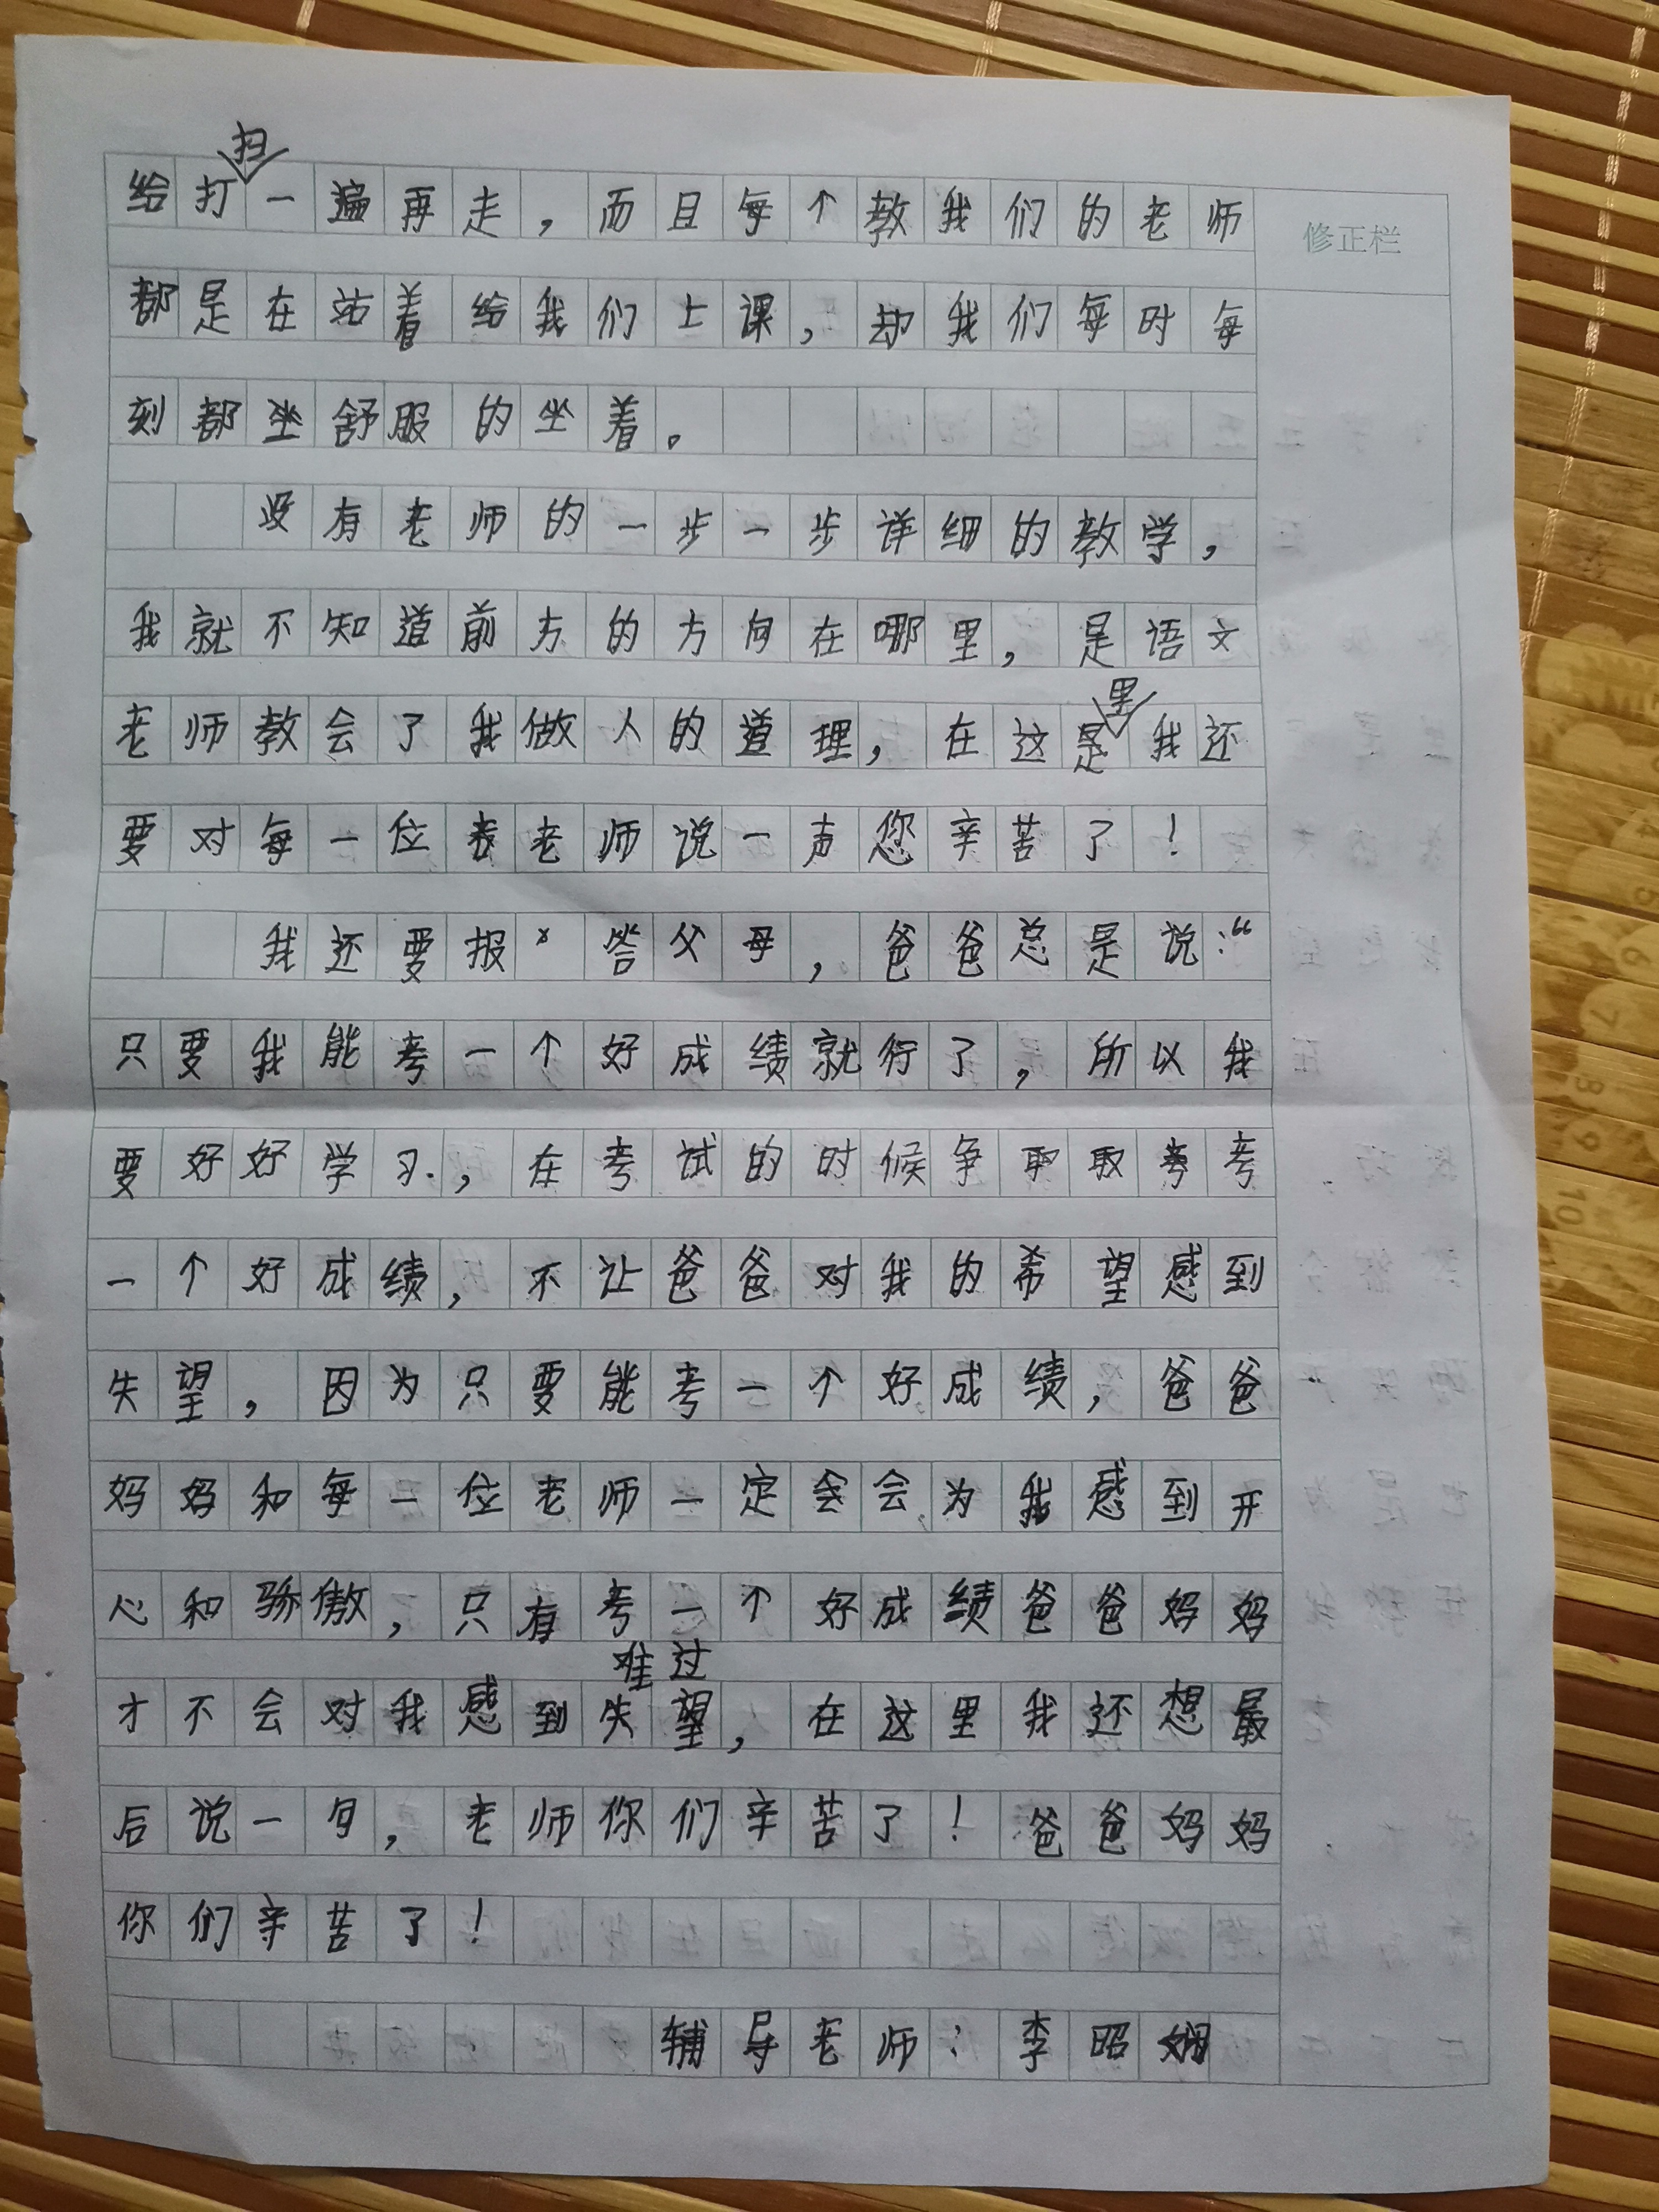 扫
给打一遍再走，而且每个教我们的老师
修正栏
都是在站着给我们上课，却我们每时每
刻都坐舒服的坐着。
没有老师的一步一步详细的教学，
我就不知道前方的方向在哪里，是语文
里
老师教会了我做人的道理，在这是我还
要对每一位老老师说一声您辛苦了！
我还要报答父母，爸爸总是说：“
只要我能考一个好成绩就行了，所以我
要好好学习.，在考试的时候争取取考考
一个好成绩，不让爸爸对我的希望感到
失望，因为只要能考一个好成绩，爸爸
妈妈和每一位老师一定会会为我感到开
心和骄傲，只有考一个好成绩爸爸妈妈
难过
才不会对我感到失望，在这里我还想最
后说一句，老师你们辛苦了！爸爸妈妈
你们辛苦了！
辅导老师：李昭娴